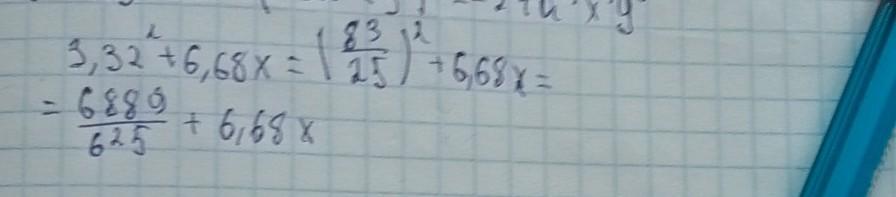 3,32² + 6,68x = (83/25)² + 6,68x =
= 6889/625 + 6,68x